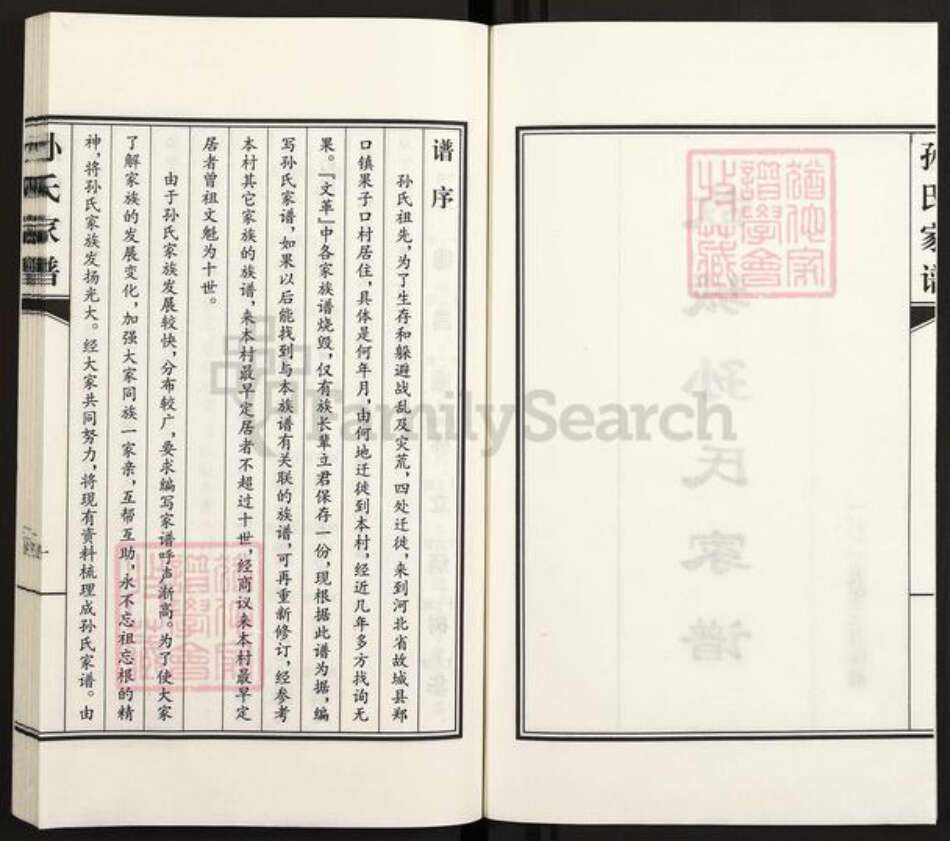 孙氏家谱
谱序
孙氏祖先，为了生存和躲避战乱及灾荒，四处迁徙，来到河北省故城县郑
口镇果子口村居住，具体是何年月，由何地迁徙到本村，经近几年多方找询无
果。『文革』中各家族谱烧毁，仅有族长辈立君保存一份，现根据此谱为据，编
写孙氏家谱，如果以后能找到与本族谱有关联的族谱，可再重新修订，经参考
本村其它家族的族谱，来本村最早定居者不超过十世，经商议来本村最早定
居者曾祖文魁为十世。
由于孙氏家族发展较快，分布较广，要求编写家谱呼声渐高。为了使大家
了解家族的发展变化，加强大家同族一家亲，互帮互助，永不忘祖忘根的精
神，将孙氏家族发扬光大。经大家共同努力，将现有资料梳理成孙氏家谱。由
孙氏家谱
FamilySearch